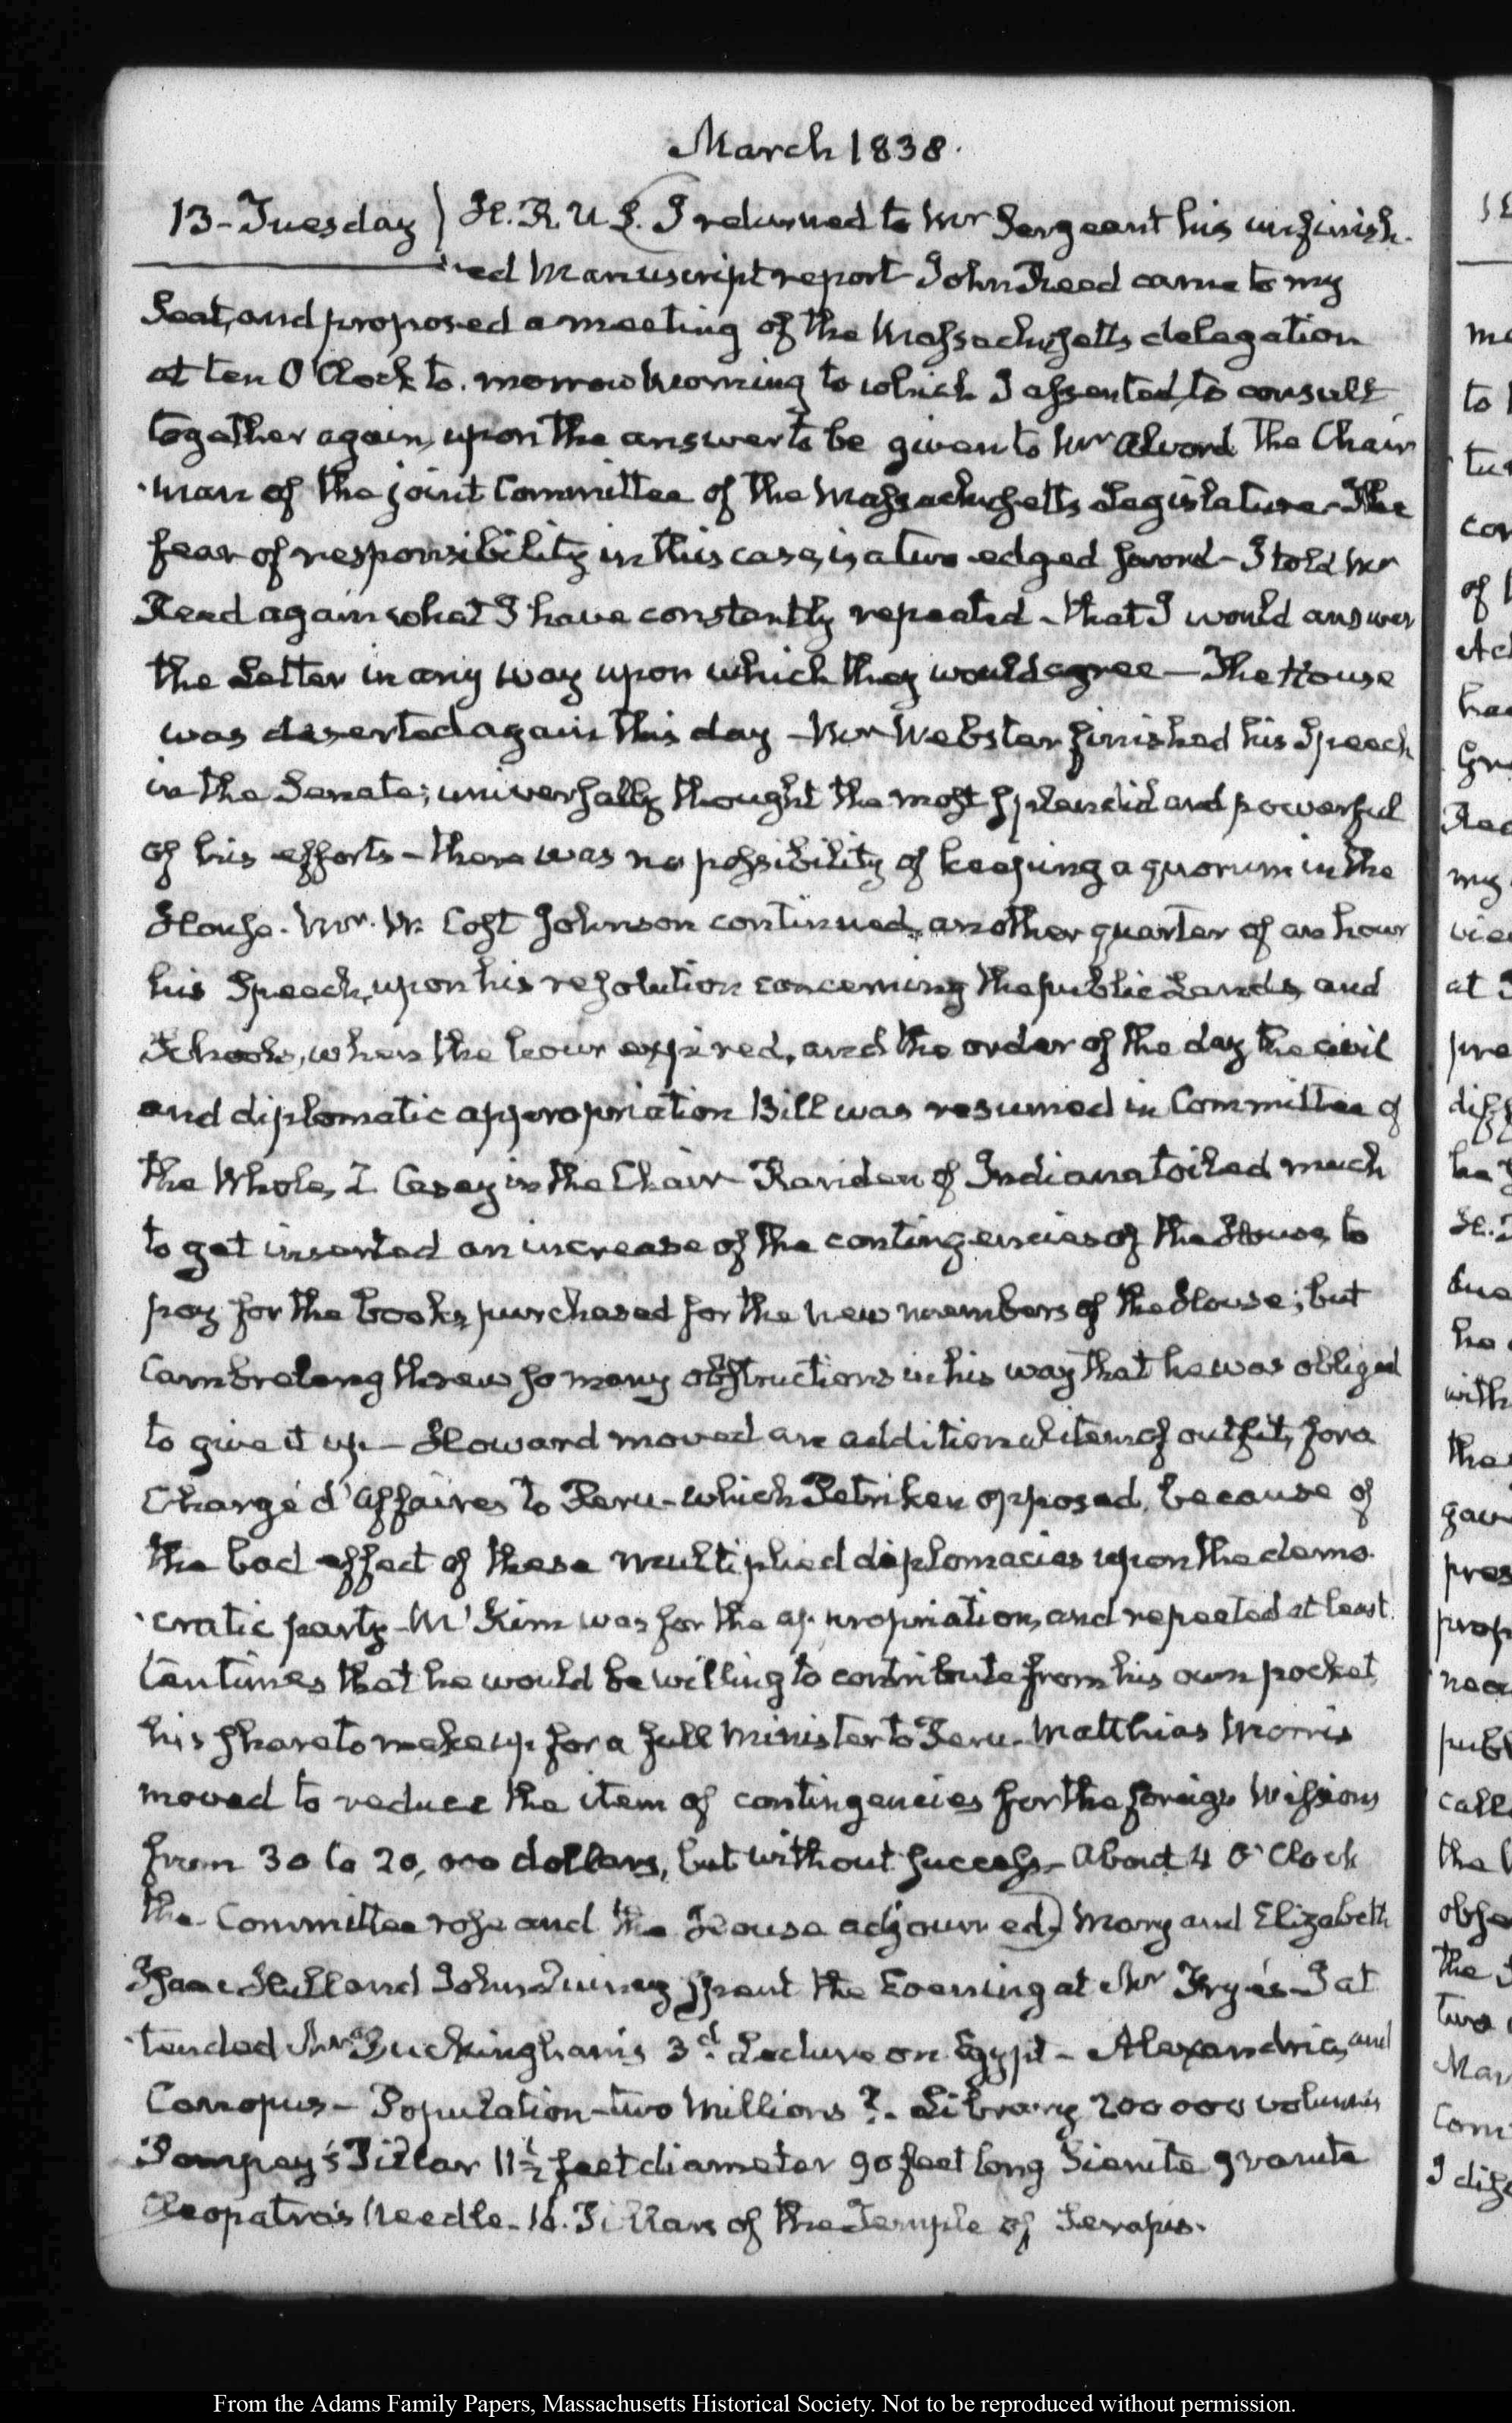 March 1838.
13 - Tuesday } H. R. U S. (I returned to Mr Sergeant his unfinish-
-ed Manuscript report - John Reed came to my
Seat, and proposed a meeting of the Massachusetts delegation
at ten O'Clock to-morrow Morning to which I assented, to consult
together again, upon the answer to be given to Mr Alvord The Chair
-man of the joint Committee of the Massachusetts Legislature - The
fear of responsibility in this case, is a two edged sword - I told Mr
Reed again what I have constantly repeated - that I would answer
the Letter in any way upon which they would agree — The House
was deserted again this day - Mr Webster finished his Speech
in the Senate; universally thought the most splendid and powerful
of his efforts - there was no possibility of keeping a quorum in the
House. Mr. W. Cost Johnson continued another quarter of an hour
his Speech, upon his resolution concerning the public Lands and
Schools, when the hour expired, and the order of the day the civil
and diplomatic appropriation Bill was resumed in Committee of
the Whole, Z Casey in the Chair - Rariden of Indiana toiled much
to get inserted an increase of the contingencies of the House, to
pay for the books, purchased for the new members of the House; but
Cambreleng threw so many obstructions in his way that he was obliged
to give it up — Howard moved an additional item of outfit, for a
Chargé d'Affaires to Peru - which Petriken opposed, because of
the bad effect of these multiplied diplomacies upon the demo-
-cratic party - McKim was for the appropriation, and repeated at least
ten times that he would be willing to contribute from his own pocket,
his share to make up for a full Minister to Peru - Matthias Morris
moved to reduce the item of contingencies for the foreign Missions
from 30 to 20,000 dollars, but without success - About 4 O'Clock
the Committee rose and the House adjourned) Mary and Elizabeth
Isaac Hull and John Quincy spent the Evening at Mr Frye's - I at
-tended Mr Buckingham's 3d. Lecture on Egypt - Alexandria, and
Canopus - Population - two Millions? - Library 200000 volumes
Pompey's Pillar 11½ feet diameter 90 feet long Sienite granite
Cleopatra's Needle - Pillars of the Temple of Serapis.
From the Adams Family Papers, Massachusetts Historical Society. Not to be reproduced without permission.